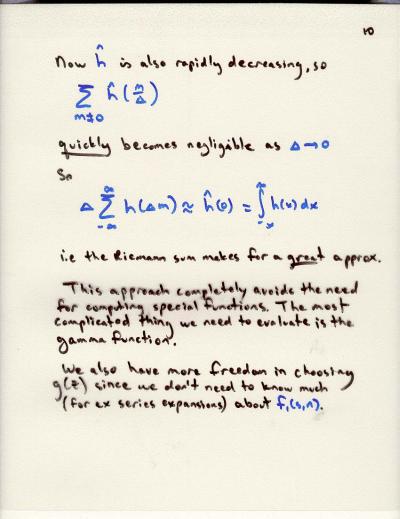 10
Now ĥ is also rapidly decreasing, so
∑ ĥ(m/Δ)
m≠0
quickly becomes negligible as Δ→0
So
Δ ∑_{-∞}^{∞} h(Δm) ≈ ĥ(0) = ∫_{-∞}^{∞} h(x)dx
i.e the Riemann sum makes for a great approx.
This approach completely avoids the need
for computing special functions. The most
complicated thing we need to evaluate is the
gamma function.
We also have more freedom in choosing
g(z) since we don't need to know much
(for ex series expansions) about f₁(s,n).